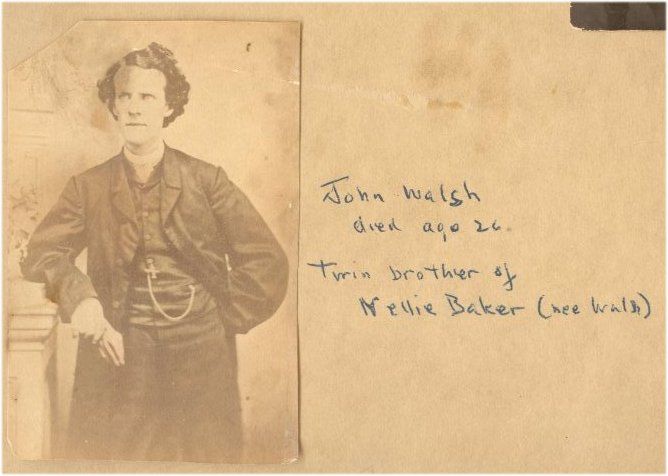 John Walsh
died age 26.
Twin brother of
Nellie Baker (nee Walsh)